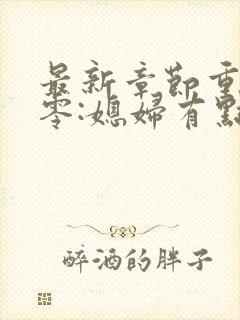 最新章節重
零:媳婦有點
醉酒的胖子